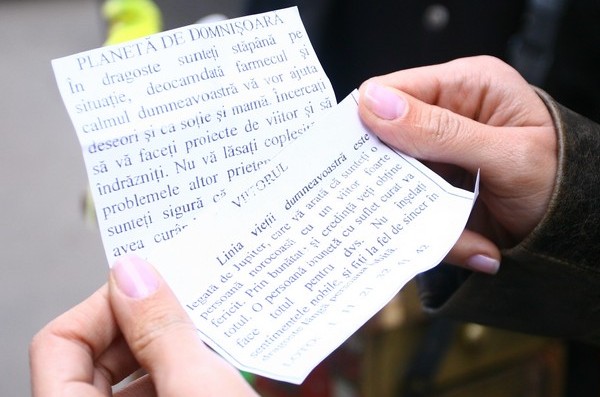 PLANETĂ DE DOMNIȘOARĂ
În dragoste sunteți stăpână pe
situație, deocamdată farmecul și
calmul dumneavoastră vă vor ajuta
deseori și ca soție și mamă. Încercați
să vă faceți proiecte de viitor și să
îndrăzniți. Nu vă lăsați
problemele altor
sunteți sigură că
avea
VIITORUL
Linia vieții dumneavoastră este
legată de Jupiter, care vă arată că sunteți o
persoană norocoasă cu un viitor foarte
fericit. Prin bunătate și credință veți obține
totul. O persoană brunetă cu suflet curat va
face totul pentru dvs. Nu înșelați
sentimentele nobile, și fiți la fel de sincer în
dragoste lângă persoana iubită.
LOTO: 1 11 21 22 31 42